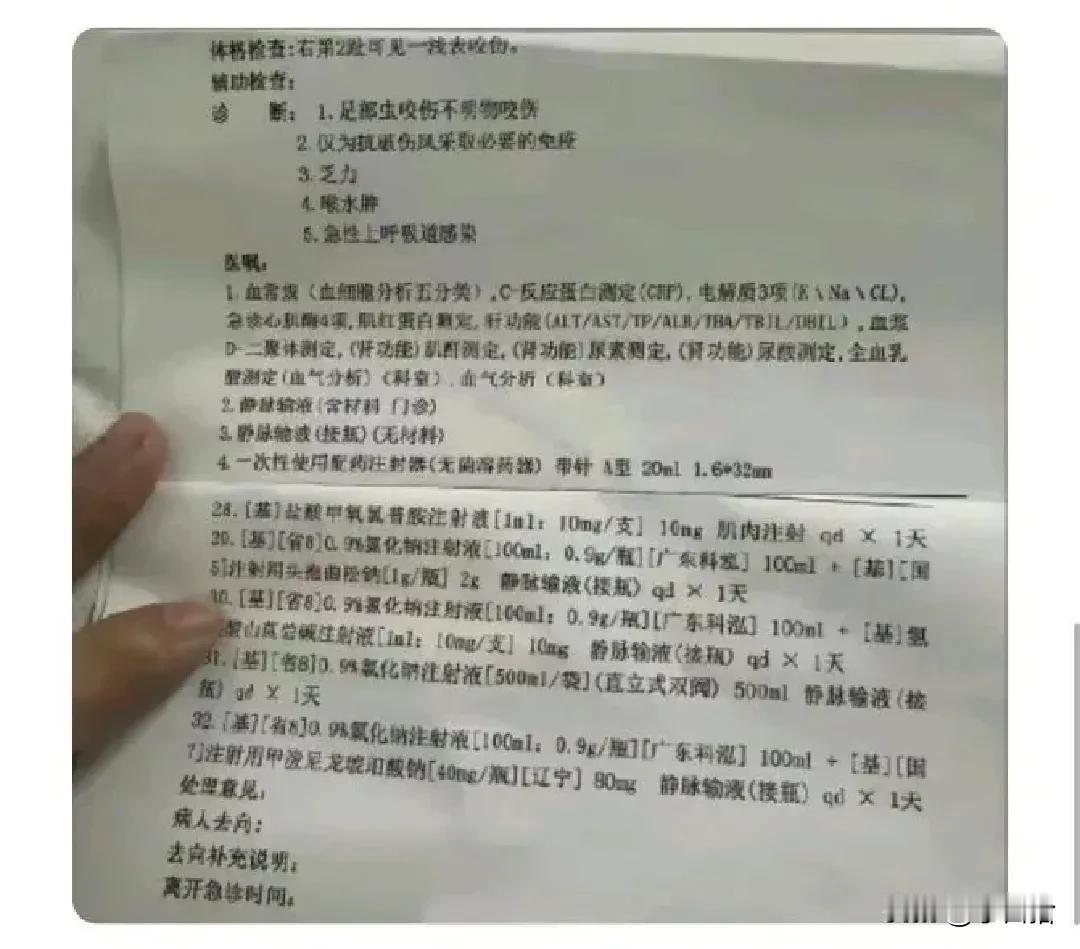 体格检查:右第2趾可见一浅表咬伤。
辅助检查:
诊 断: 1.足部虫咬伤不明物咬伤
2.仅为抗破伤风采取必要的免疫
3.乏力
4.喉水肿
5.急性上呼吸道感染
医嘱:
1.血常规(血细胞分析五分类),C-反应蛋白测定(CRP),电解质3项(K\Na\CL),
急诊心肌酶4项,肌红蛋白测定,肝功能(ALT/AST/TP/ALB/TBA/TBIL/DBIL),血浆
D-二聚体测定,(肾功能)肌酐测定,(肾功能)尿素测定,(肾功能)尿酸测定,全血乳
酸测定(血气分析)(科室),血气分析(科室)
2.静脉输液(含材料 门诊)
3.静脉输液(接瓶)(无材料)
4.一次性使用配药注射器(无菌溶药器) 带针 A型 20ml 1.6*32mm
28.[基]盐酸甲氧氯普胺注射液[1ml: 10mg/支] 10mg 肌肉注射 qd × 1天
29.[基][省8]0.9%氯化钠注射液[100ml: 0.9g/瓶][广东科泓] 100ml + [基][国
5]注射用头孢曲松钠[1g/瓶] 2g 静脉输液(接瓶) qd × 1天
30.[基][省8]0.9%氯化钠注射液[100ml: 0.9g/瓶][广东科泓] 100ml + [基]氢
溴酸山莨菪碱注射液[1ml: 10mg/支] 10mg 静脉输液(接瓶) qd × 1天
31.[基][省8]0.9%氯化钠注射液[500ml/袋](直立式双阀) 500ml 静脉输液(接
瓶) qd × 1天
32.[基][省8]0.9%氯化钠注射液[100ml: 0.9g/瓶][广东科泓] 100ml + [基][国
7]注射用甲泼尼龙琥珀酸钠[40mg/瓶][辽宁] 80mg 静脉输液(接瓶) qd × 1天
处理意见:
病人去向:
去向补充说明:
离开急诊时间: